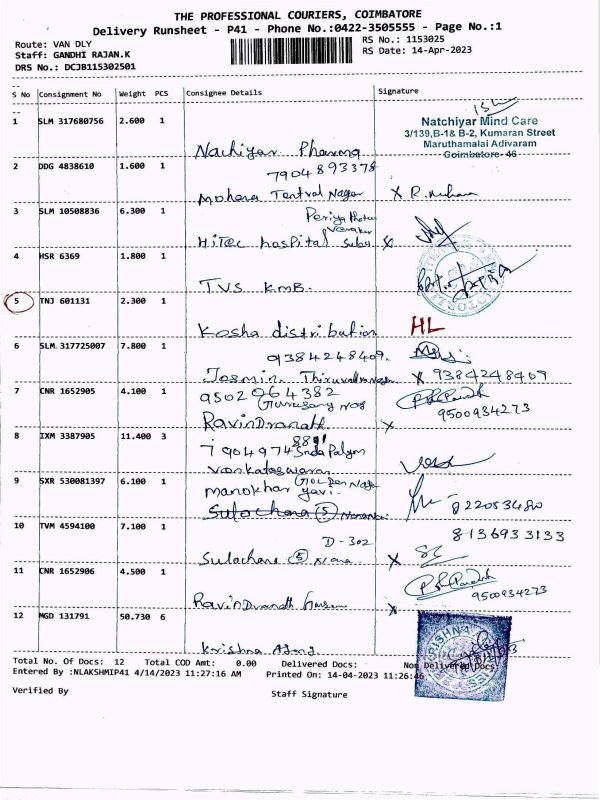 THE PROFESSIONAL COURIERS, COIMBATORE
Delivery Runsheet - P41 - Phone No.:0422-3505555 - Page No.:1
Route: VAN DLY
RS No.: 1153025
Staff: GANDHI RAJAN.K
RS Date: 14-Apr-2023
DRS No.: DCJB115302501
S No Consignment No Weight PCS Consignee Details Signature
Natchiyar Mind Care
3/139,B-1& B-2, Kumaran Street
Maruthamalai Adivaram
Coimbatore- 46
1 SLM 317680756 2.600 1
Nachiyar Pharma
7904893378
2 DDG 4838610 1.600 1
Mohana Nagar X
3 SLM 10508836 6.300 1
Hitec hospital X
4 HSR 6369 1.800 1
TVS KMB.
5 TNJ 601131 2.300 1
Kosha distribution HL
09384248409.
6 SLM 317725007 7.800 1
Jasmin. X 9384248409
9502064382
7 CNR 1652905 4.100 1
9500934273
Ravindranath X
8 IXM 3387905 11.400 3
9 SXR 530081397 6.100 1
822053480
10 TVM 4594100 7.100 1
8136933133
D-302
Sulochana 5 X
11 CNR 1652906 4.500 1
9500934273
Ravindranath X
12 MGD 131791 50.730 6
Krishna
Total No. Of Docs: 12 Total COD Amt: 0.00 Delivered Docs: Non Delivered Docs:
Entered By :NLAKSHMIP41 4/14/2023 11:27:16 AM Printed On: 14-04-2023 11:26:46
Verified By Staff Signature